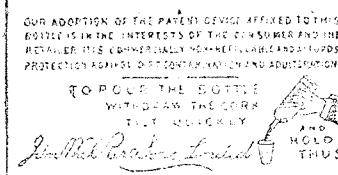 OUR ADOPTION OF THE PATENT DEVICE AFFIXED TO THIS
BOTTLE IS IN THE INTERESTS OF THE CONSUMER AND THE
RETAILER IT IS COMMERCIALLY NON-REFILLABLE AND AFFORDS
PROTECTION AGAINST DIRT CONTAMINATION AND ADULTERATION
TO POUR THE BOTTLE
WITHDRAW THE CORK
TILT QUICKLY
AND
HOLD
THUS
Limited